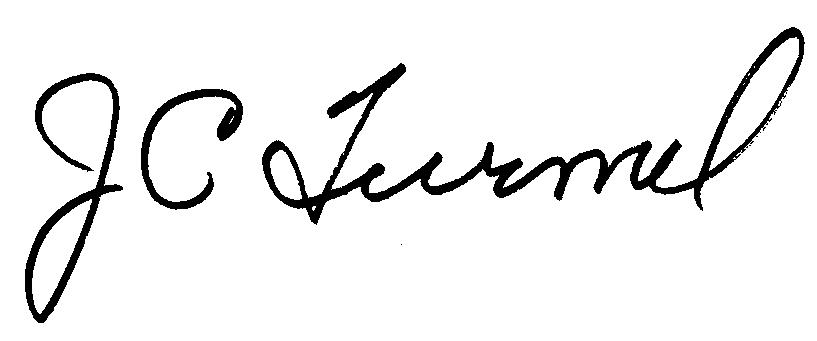 JC Turmel